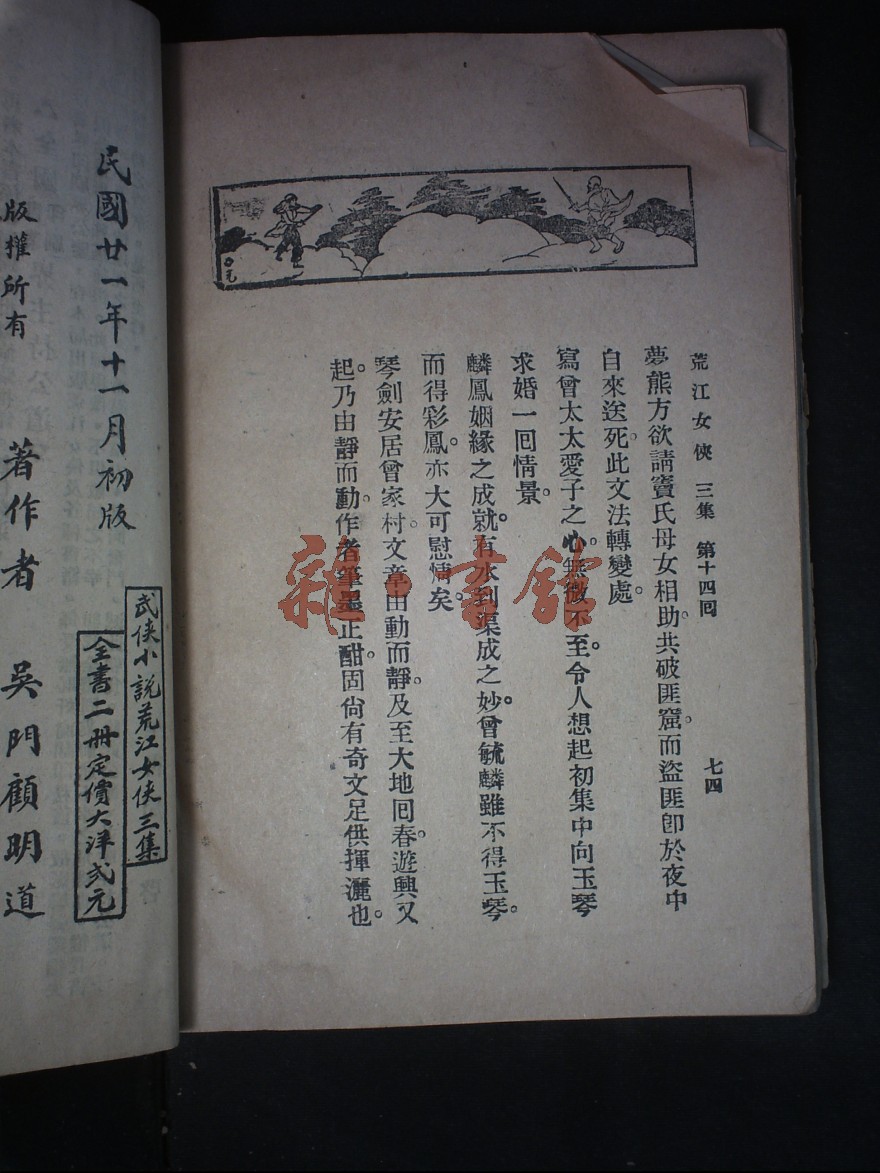 荒江女俠 三集 第十四回 七四
夢熊方欲請竇氏母女相助。共破匪窟。而盜匪卽於夜中
自來送死。此文法轉變處。
寫曾太太愛子之心。無微不至。令人想起初集中向玉琴
求婚一回情景。
麟鳳姻緣之成就。有水到渠成之妙。曾毓麟雖不得玉琴。
而得彩鳳。亦大可慰情矣。
琴劍安居曾家村。文章由動而靜。及至大地回春。遊興又
起。乃由靜而動。作者筆墨正酣。固尙有奇文足供揮灑也。
武俠小說荒江女俠三集
全書二冊定價大洋弍元
民國廿一年十一月初版
版權所有
著作者 吳門顧明道
雜·書館